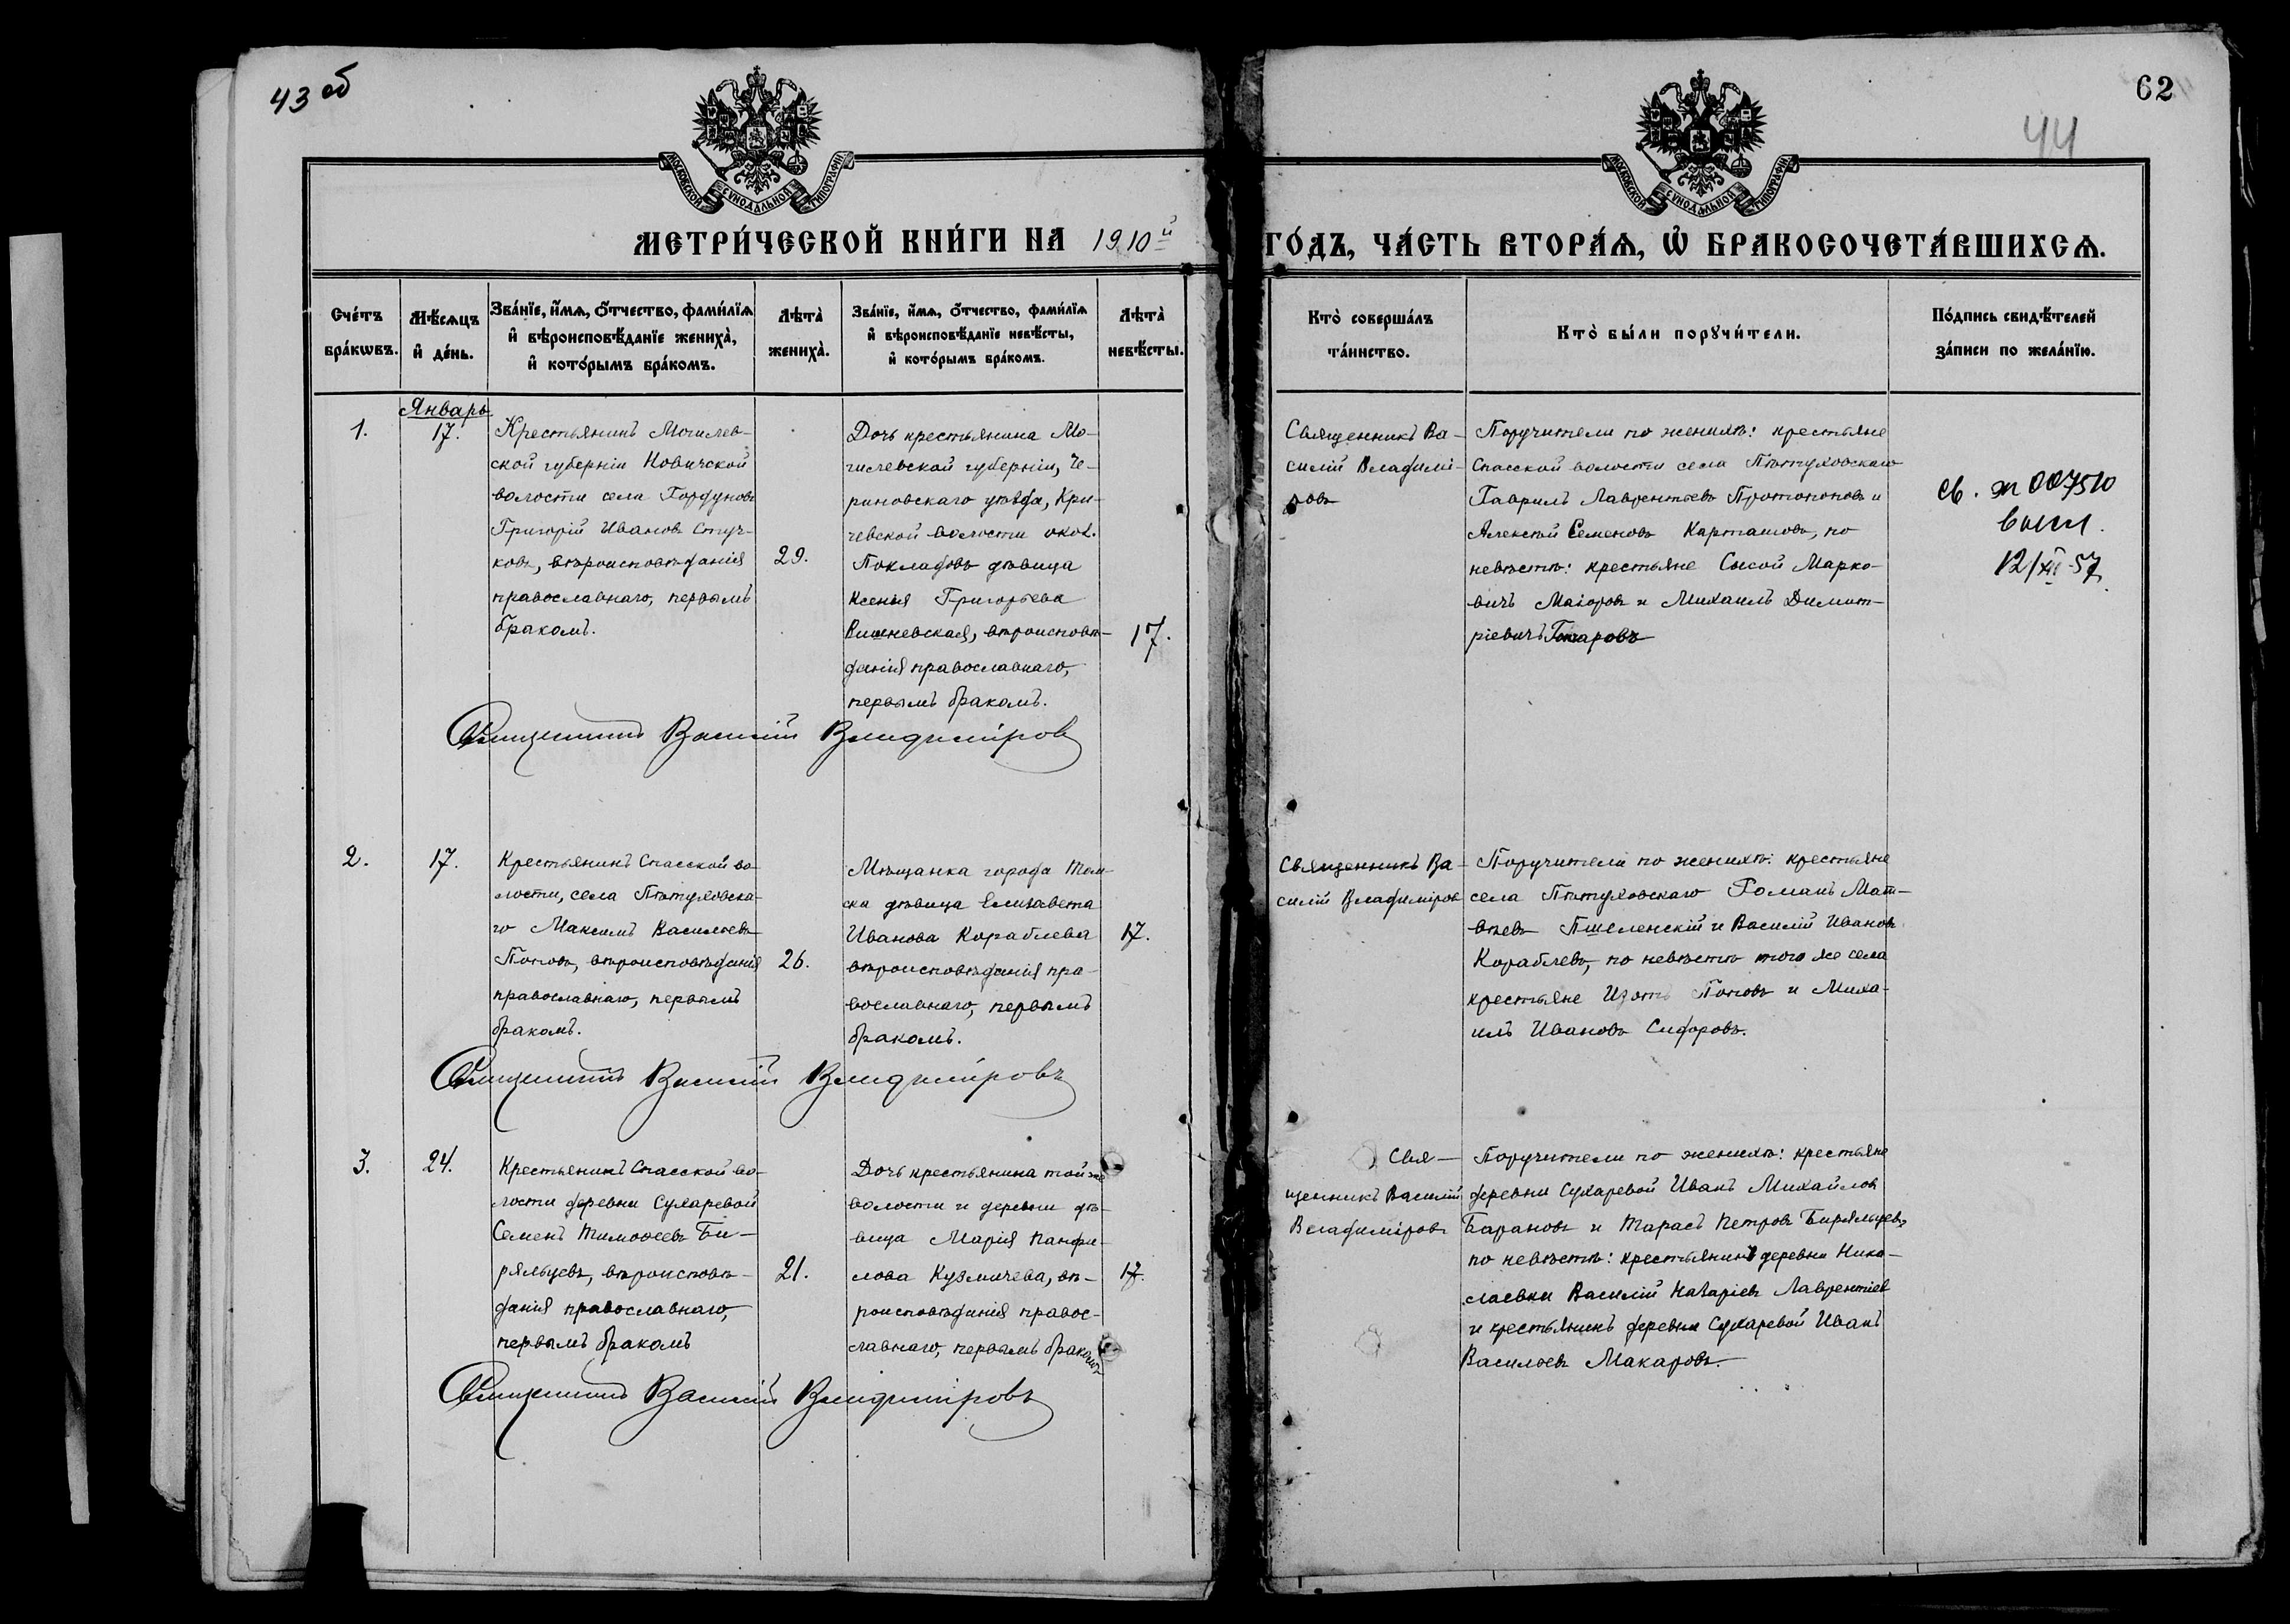 43 об
62
44
МОСКОВСКОЙ СѴНОДАЛЬНОЙ ТИПОГРАФІИ
МОСКОВСКОЙ СѴНОДАЛЬНОЙ ТИПОГРАФІИ
МЕТРИ́ЧЕСКОЙ КНИ́ГИ НА 1910й ГО́ДЪ, ЧА́СТЬ ВТОРА́Ѧ, Ѽ БРАКОСОЧЕТА́ВШИХСѦ.
Сче́тъ
бра́кѡвъ.
Мѣ́сѧцъ
и҆ де́нь.
Зва́нїе, и҆́мѧ, ѻ҆́тчество, фами́лїѧ
и҆ вѣроисповѣ́данїе жениха̀,
и҆ кото́рымъ бра́комъ.
Лѣта̀
жениха̀.
Зва́нїе, и҆́мѧ, ѻ҆́тчество, фами́лїѧ
и҆ вѣроисповѣ́данїе невѣ́сты,
и҆ кото́рымъ бра́комъ.
Лѣта̀
невѣ́сты.
Кто̀ соверша́лъ
та́инство.
Кто̀ бы́ли порꙋчи́тели.
По́дпись свидѣ́телей
за́писи по жела́нїю.
1.
Январь
17.
Крестьянинъ Могилев-
ской губерніи Новичской
волости села Гордуновъ
Григорій Ивановъ Стуч-
ковъ, вѣроисповѣданія
православнаго, первымъ
бракомъ.
29.
Дочь крестьянина Мо-
гилевской губерніи, Че-
риковскаго уѣзда, Кри-
чевской волости окол.
Покладовъ дѣвица
Ксенія Григорьева
Вишневская, вѣроисповѣ-
данія православнаго,
первымъ бракомъ.
17.
Священникъ Ва-
силій Владимі-
ровъ
Поручители по женихѣ: крестьяне
Спасской волости села Пѣтуховскаго
Гавриилъ Лаврентьевъ Протопоповъ и
Алексѣй Семеновъ Карташовъ, по
невѣстѣ: крестьяне Сысой Марко-
вичъ Маіоровъ и Михаилъ Димит-
ріевичъ
св. 007510
выд.
12/XII-57
Священникъ Василій Владиміров
2.
17.
Крестьянинъ Спасской во-
лости, села Пѣтуховска-
го Максимъ Васильевъ
Поповъ, вѣроисповѣданія
православнаго, первымъ
бракомъ.
26.
Мѣщанка города Том-
ска дѣвица Елизавета
Иванова Кораблева
вѣроисповѣданія пра-
вославнаго, первымъ
бракомъ.
17.
Священникъ Ва-
силій Владиміров
Поручители по женихѣ: крестьяне
села Пѣтуховскаго Романъ Мат-
вѣевъ Пшеленскій и Василій Ивановъ
Кораблевъ, по невѣстѣ того же села
крестьяне Изотъ Поповъ и Миха-
илъ Ивановъ Сидоровъ.
Священникъ Василій Владиміровъ
3.
24.
Крестьянинъ Спасской во-
лости деревни Сухаревой
Семенъ Тимофеевъ Би-
ряльцевъ, вѣроисповѣ-
данія православнаго,
первымъ бракомъ
21.
Дочь крестьянина той же
волости и деревни дѣ-
вица Марія Панфи-
лова Кузмичева, вѣ-
роисповѣданія правос-
лавнаго, первымъ бракомъ
17.
Свя-
щенникъ Василій
Владиміровъ
Поручители по женихѣ: крестьяне
деревни Сухаревой Иванъ Михайлов
Барановъ и Тарасъ Петровъ Биряльцевъ,
по невѣстѣ: крестьянинъ деревни Нико-
лаевки Василій Назаріевъ Лаврентіев
и крестьянинъ деревни Сухаревой Иванъ
Васильевъ Макаровъ.
Священникъ Василій Владиміровъ